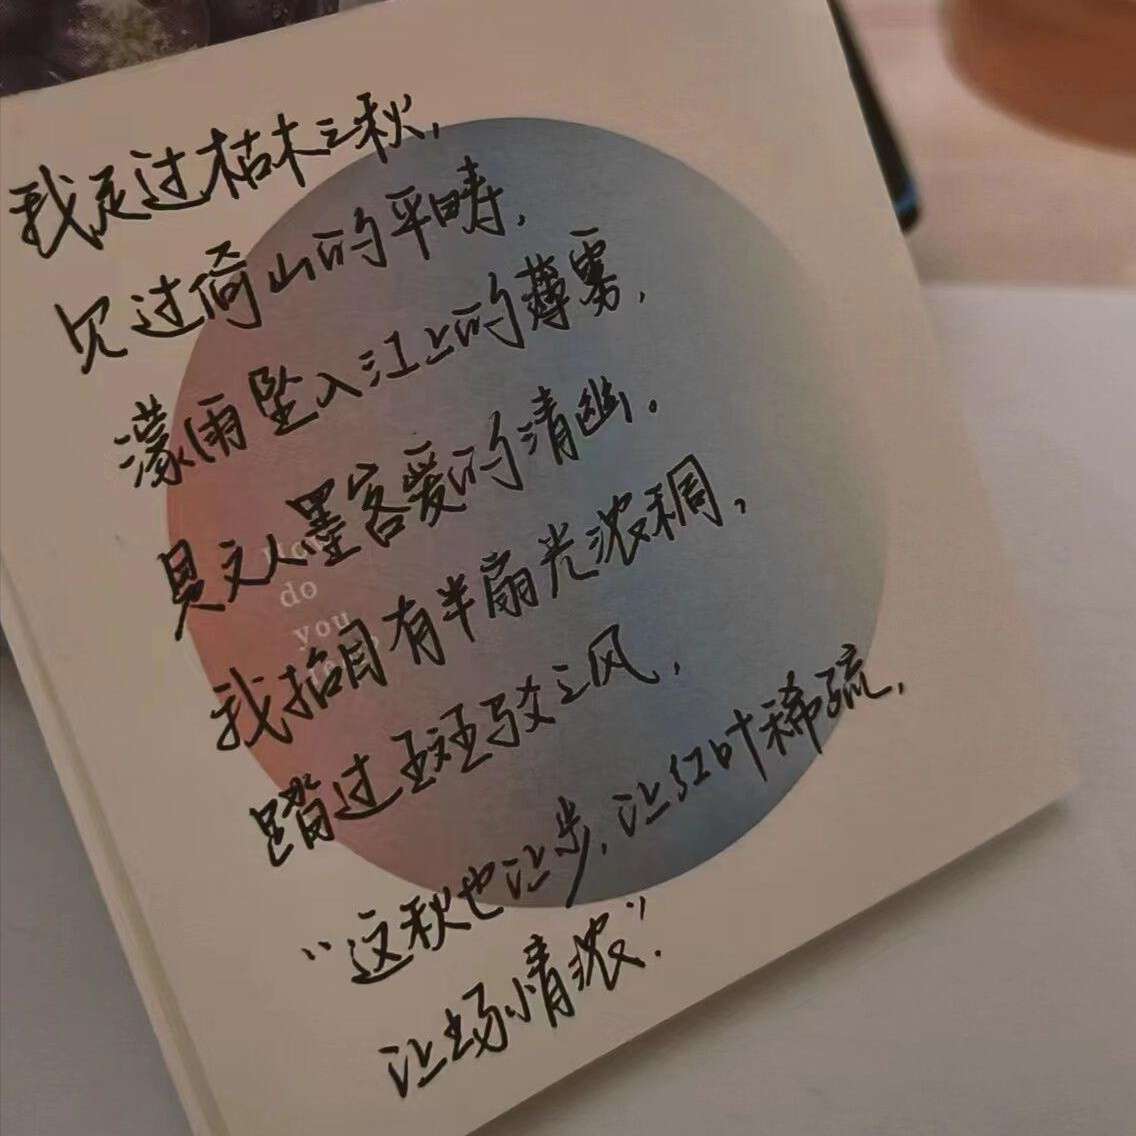 我走过枯木之秋,
欠过倚山的平畴,
濛雨坠入江上的薄雾,
是文人墨客爱的清幽。
我抬目有半扇光浓稠,
踏过斑驳之风,
“这秋也让步,让红叶稀疏,
让场情浓”.
do
you